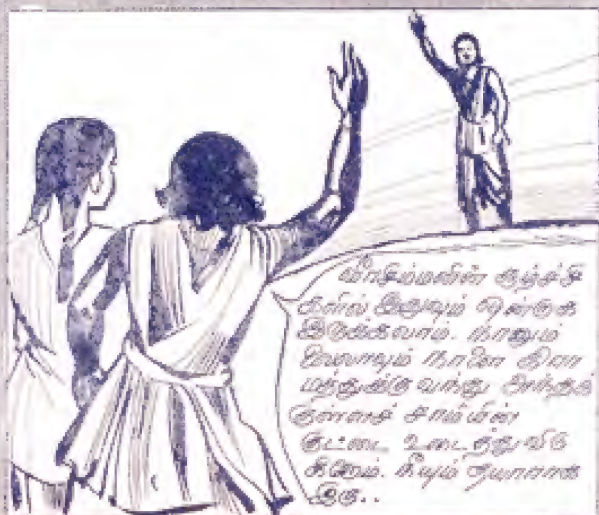 வீரசிம்மனின் சூழ்ச்சி
களில் இதுவும் ஒன்றாக
இருக்கலாம். நானும்
வேலாவும் நாளை கிரா
மத்துக்கு வந்து அந்தக்
குள்ளச் சாமியின்
குட்டை உடைத்து விடு
கிறோம். நீயும் தயாராக
இரு..